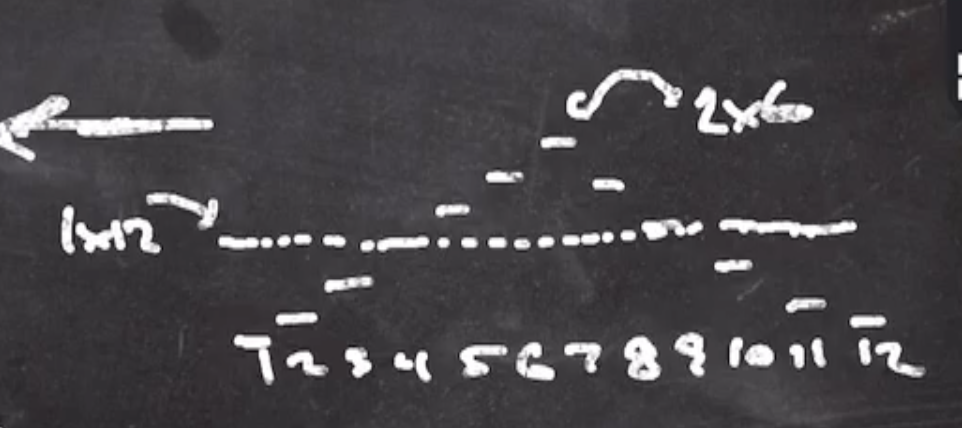 2x6
1x12
1 2 3 4 5 6 7 8 9 10 11 12